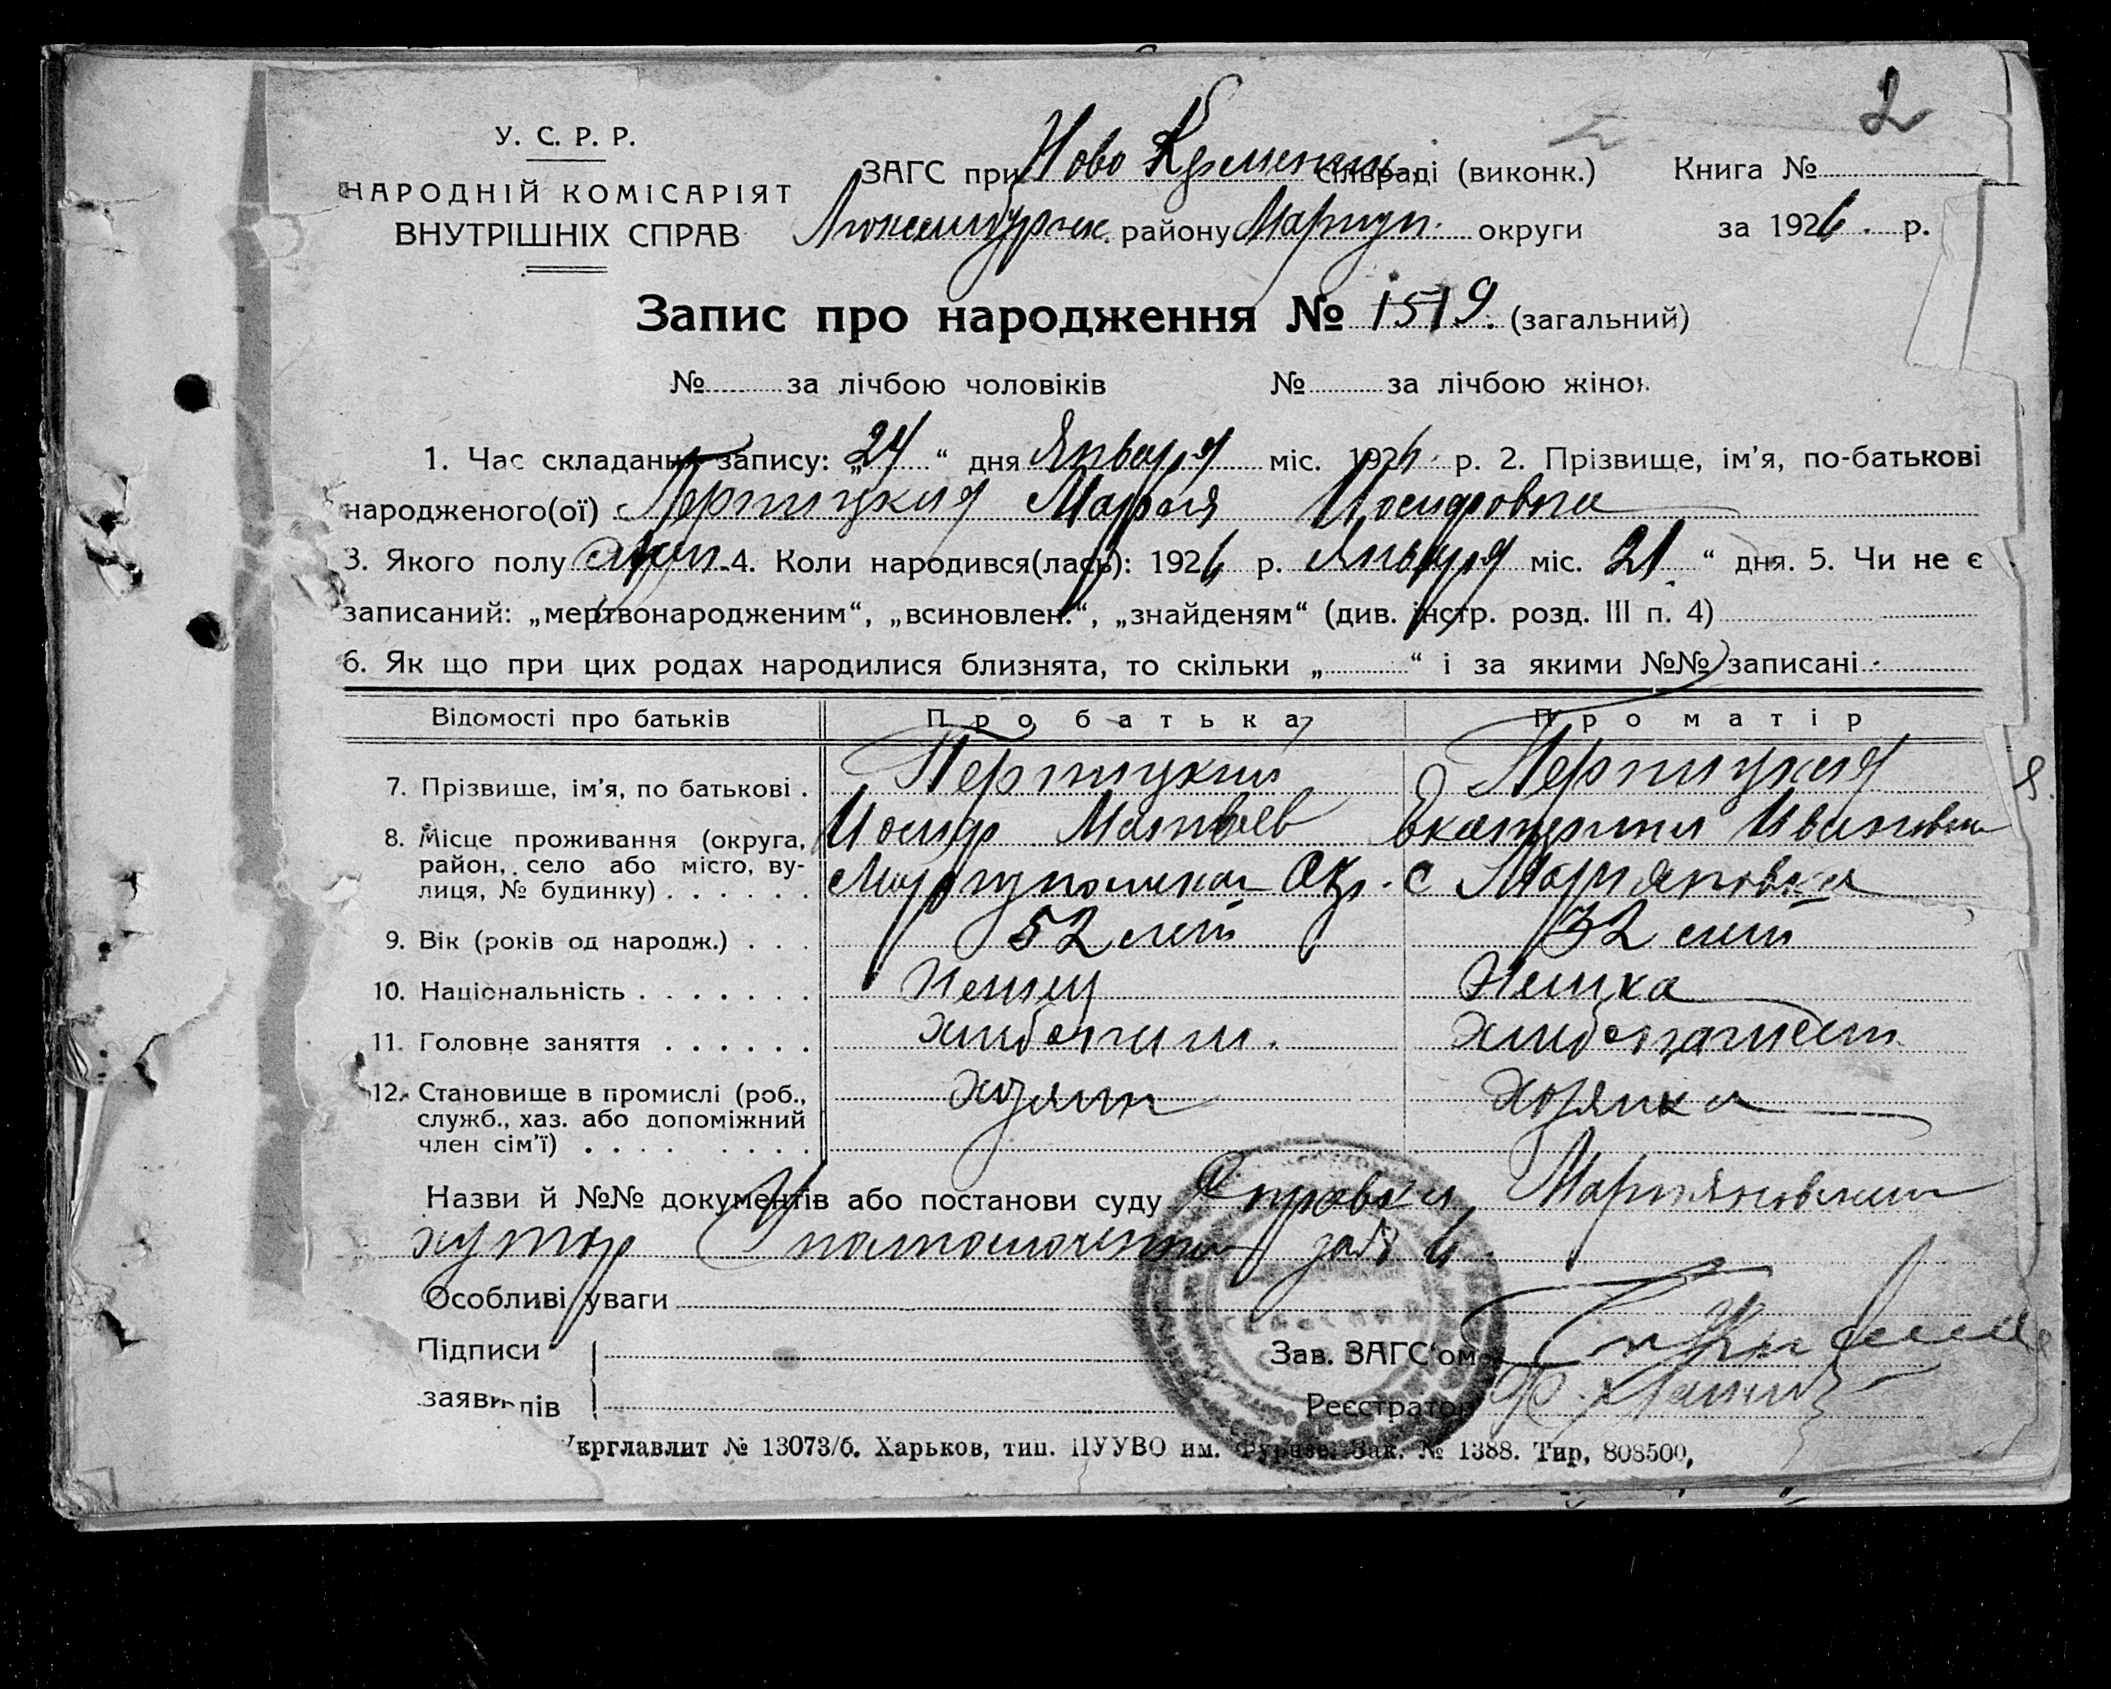 2
У. С. Р. Р.
НАРОДНІЙ КОМІСАРІЯТ
ВНУТРІШНІХ СПРАВ
ЗАГС при Ново Кременик. сільраді (виконк.) Книга №
Люксембургск. району Мариуп. округи за 1926. р.
Запис про народження № 1519. (загальний)
№ за лічбою чоловіків № за лічбою жінок
1. Час складання запису: „24“ дня Января міс. 1926 р. 2. Прізвище, ім'я, по-батькові
народженого(ої) Мария Иосифовна
3. Якого полу жен. 4. Коли народився(лась): 1926 р. Января міс. 21. “ дня. 5. Чи не є
записаний: „мертвонародженим“, „всиновлен.“, „знайденям“ (див. інстр. розд. III п. 4)
6. Як що при цих родах народилися близнята, то скільки „ “ і за якими №№ записані
Відомості про батьків Про батька Про матір
7. Прізвище, ім'я, по батькові .
8. Місце проживання (округа,
район, село або місто, ву-
лиця, № будинку) . . . . . .
Иосиф Матвеев Екатерина Ивановна
Мариупольская Окр. с Марьяновка
9. Вік (років од народж.) . . . 52 лет 32 лет
10. Національність . . . . . . . Немец Немка
11. Головне заняття . . . . . .
12. Становище в промислі (роб., хозяин хозяйка
служб., хаз. або допоміжний
член сім'ї) . . . . . . . .
Назви й №№ документів або постанови суду Справка Марьяновский
хутор Уполномоченный за № 6.
Особливі уваги
Підписи Зав. ЗАГС'ом
заявителів Реєстратор
Укрглавлит № 13073/б. Харьков, тип. ЦУУВО им. Фрунзе. Зак. № 1388. Тир, 808500,